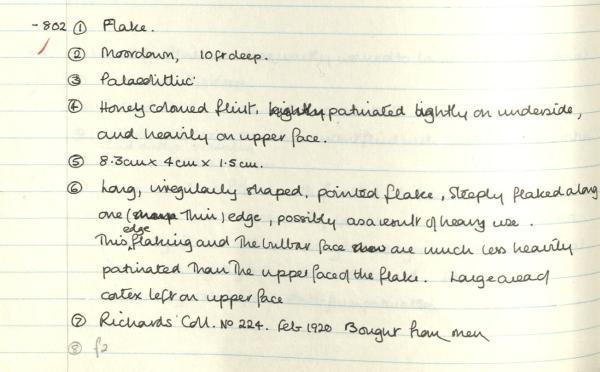 -802 ① Flake.
② Moordown, 10ft deep.
③ Palaeolithic.
④ Honey coloured flint, patinated lightly on underside,
and heavily on upper face.
⑤ 8.3cm x 4cm x 1.5cm.
⑥ Long, irregularly shaped, pointed flake, steeply flaked along
one (thin) edge, possibly as a result of heavy use.
This edge flaking and the bulbar face are much less heavily
patinated than the upper face of the flake. Large area of
cortex left on upper face
⑦ Richards Coll. No 224. Feb 1920 Bought from men
⑧ f2